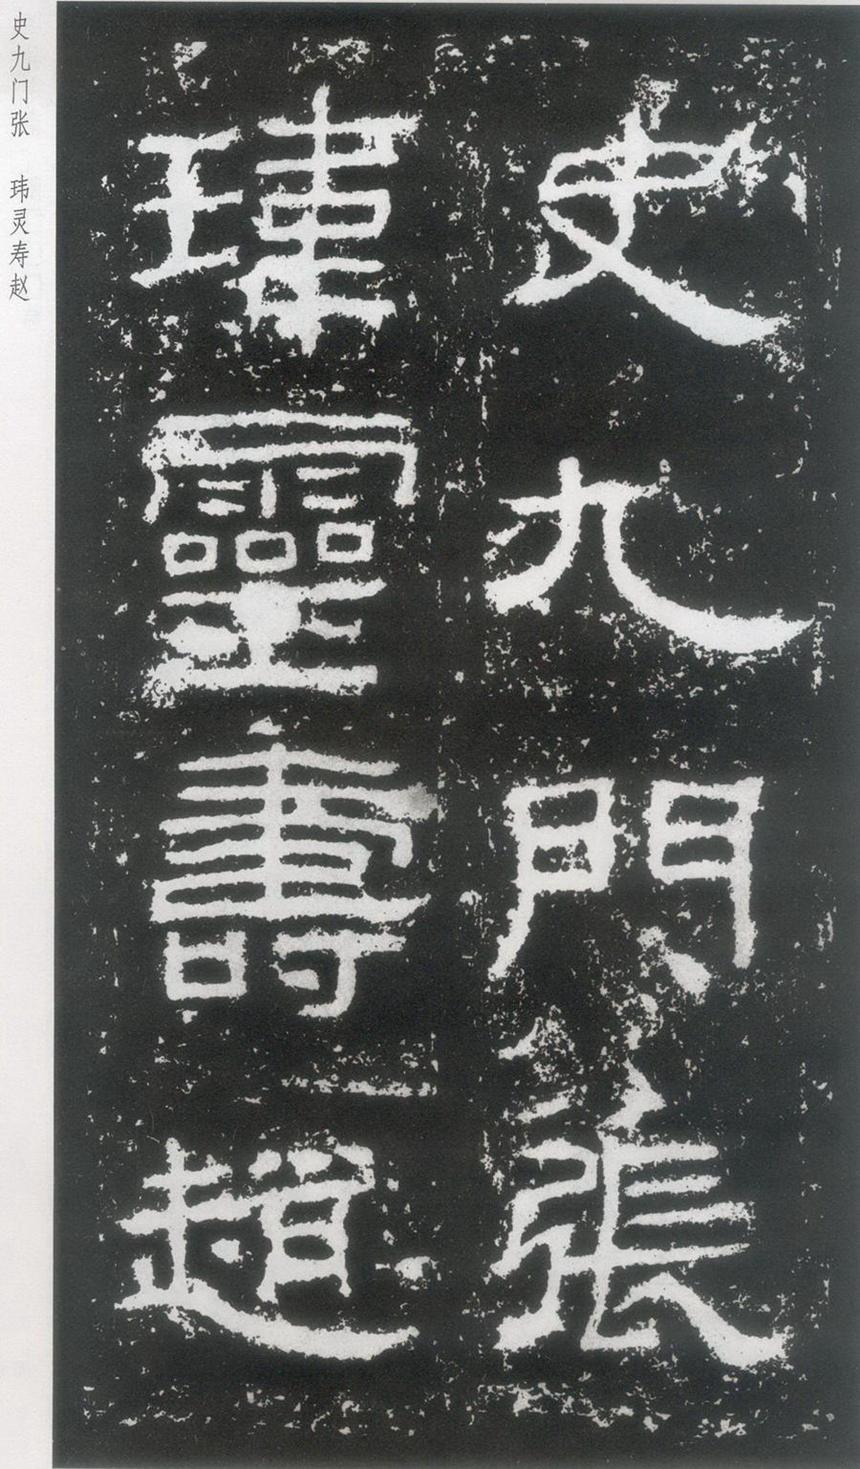 史九門張
瑋靈壽趙
史九门张 玮灵寿赵